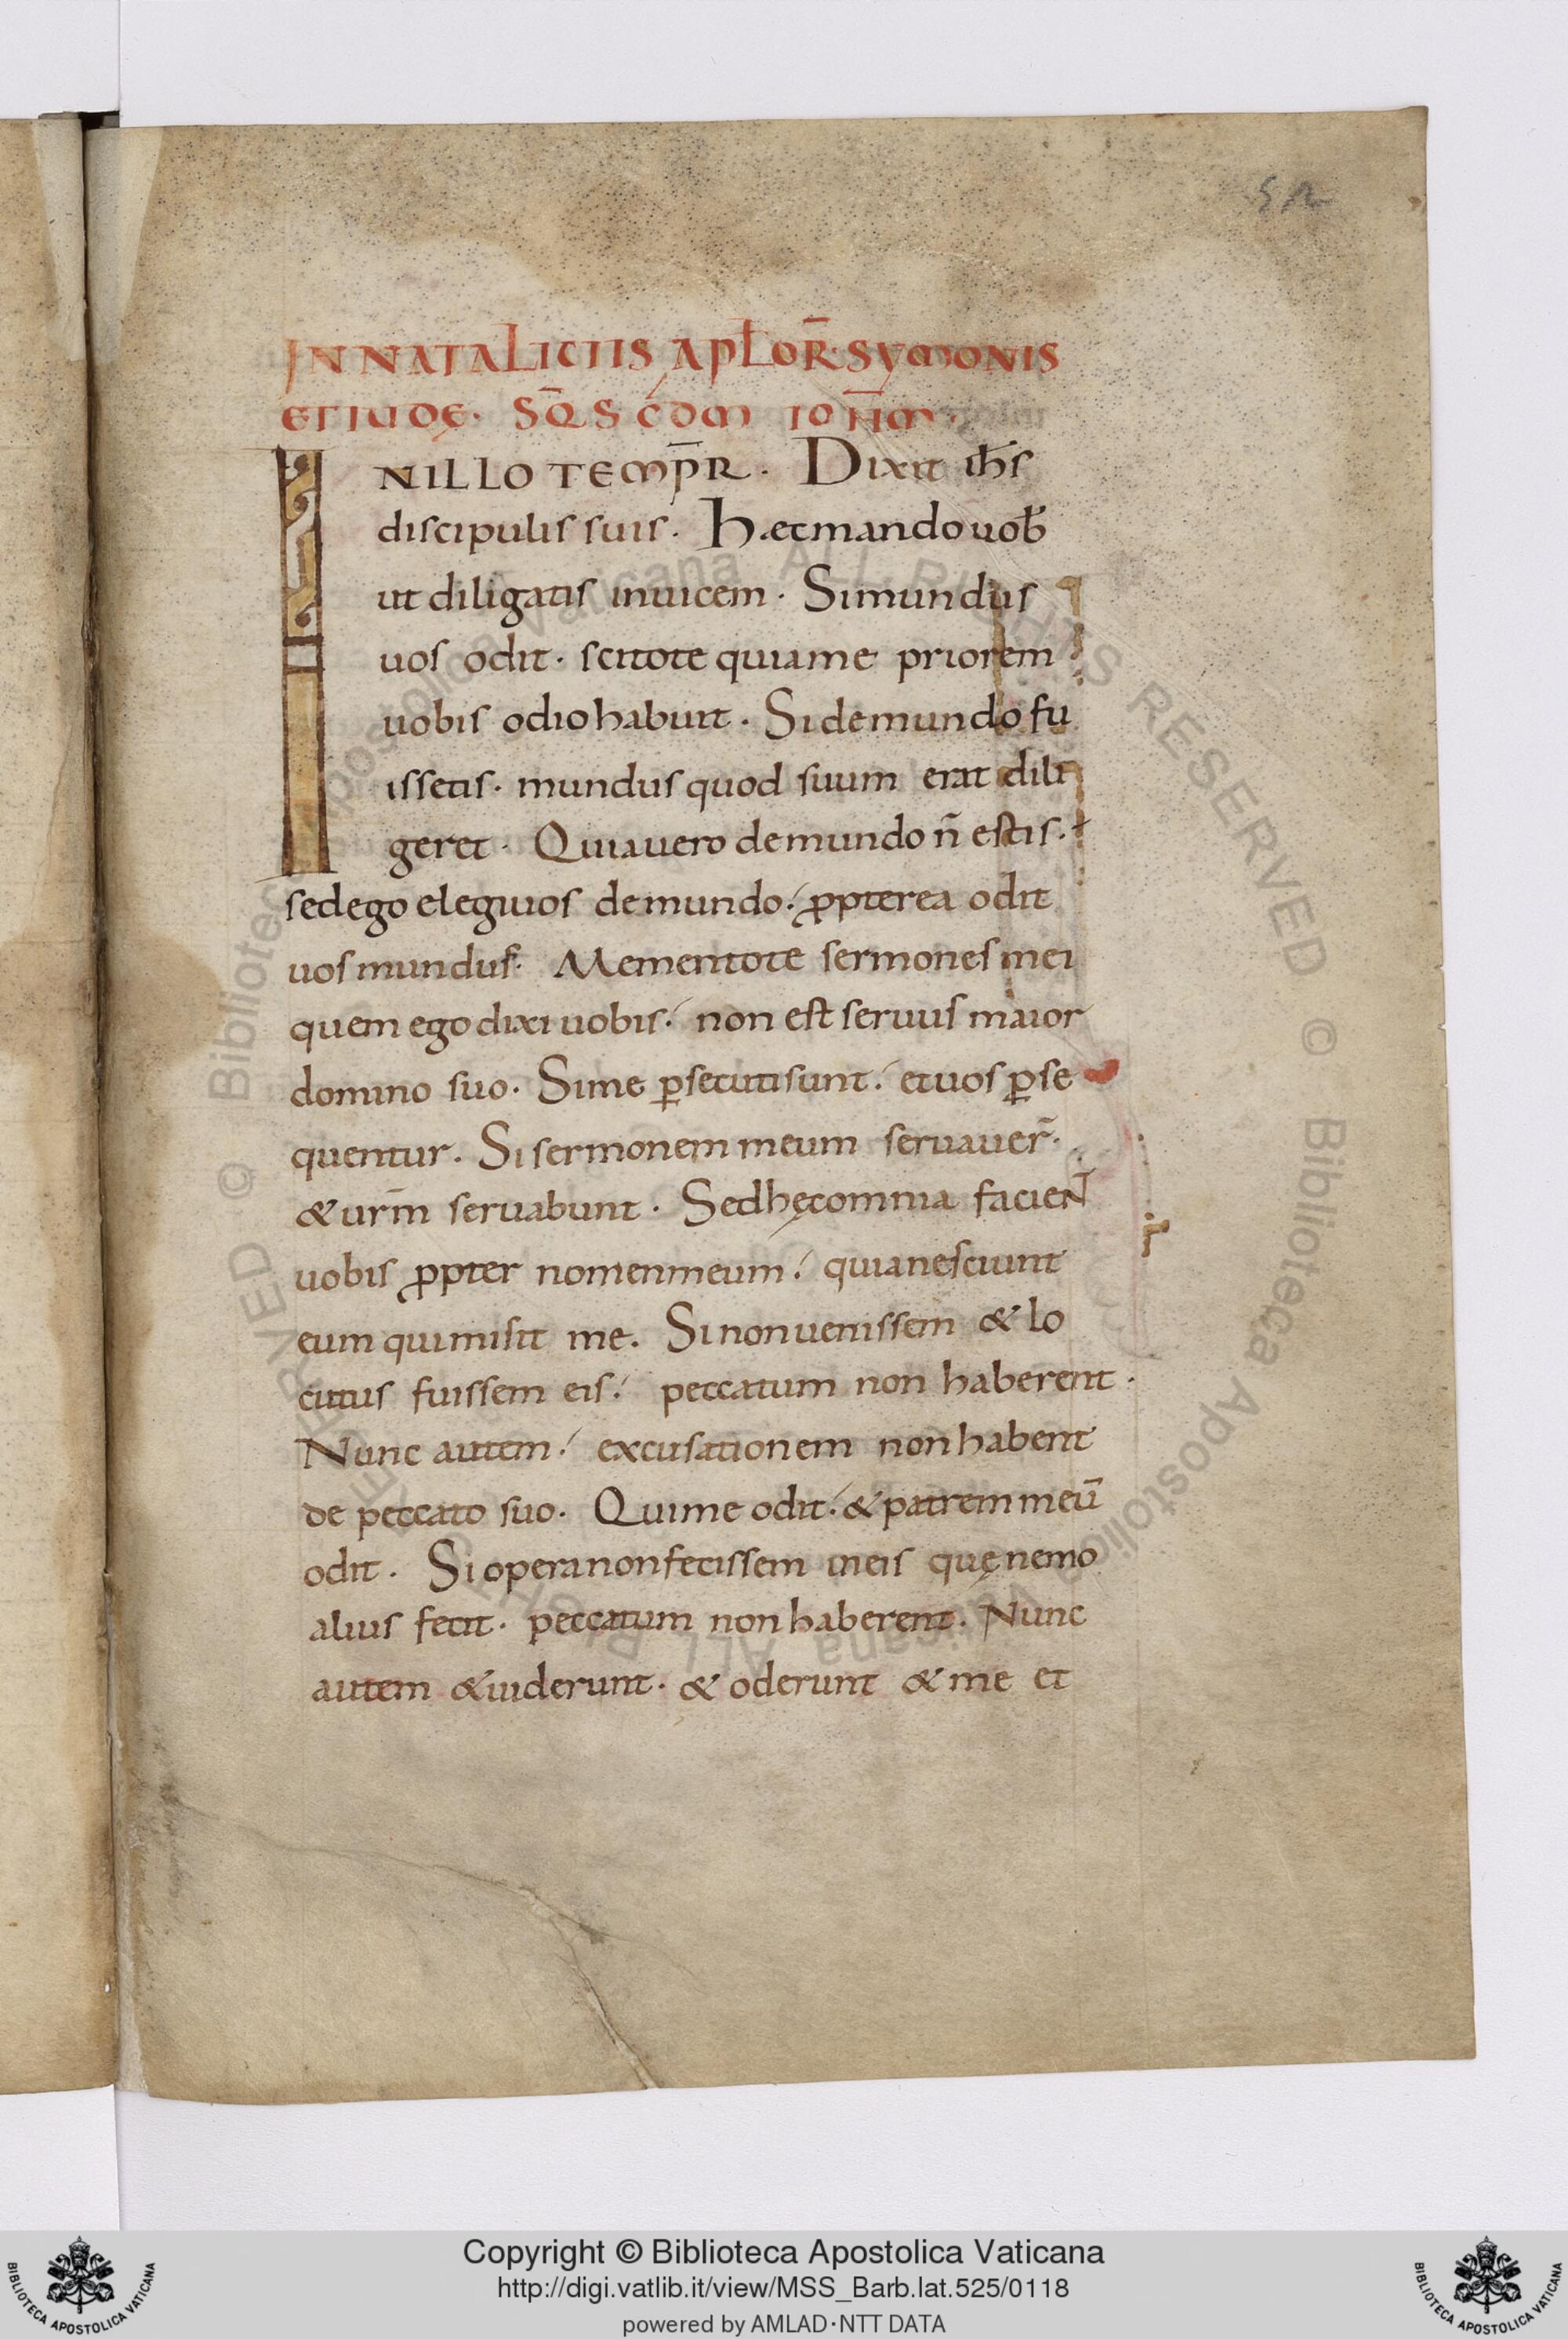 IN NATALICIIS APŁOR̄. SYMONIS
ET IUDĘ. SQ̄S ĆDM IOH̄M.
INILLO TEMP̄R. Dixit ihs̄
discipulis suis. Haec mando uob̄
ut diligatis inuicem. Si mundus
uos odit. scitote quia me priorem
uobis odio habuit. Si de mundo fu
issetis. mundus quod suum erat dili
geret. Quia uero de mundo n̄ estis.
sed ego elegi uos de mundo. ꝓpterea odit
uos mundus. Mementote sermones mei
quem ego dixi uobis. non est seruus maior
domino suo. Si me ꝑsecuti sunt. et uos ꝑse
quentur. Si sermonem meum seruauer̄.
& ur̄m seruabunt. Sed hęc omnia facient
uobis ꝓpter nomen meum. quia nesciunt
eum qui misit me. Si non uenissem & lo
cutus fuissem eis. peccatum non haberent.
Nunc autem. excusationem non habent
de peccato suo. Qui me odit. & patrem meū
odit. Si opera non fecissem in eis quę nemo
alius fecit. peccatum non haberent. Nunc
autem & uiderunt. & oderunt & me et
Copyright © Biblioteca Apostolica Vaticana
http://digi.vatlib.it/view/MSS_Barb.lat.525/0118
powered by AMLAD·NTT DATA